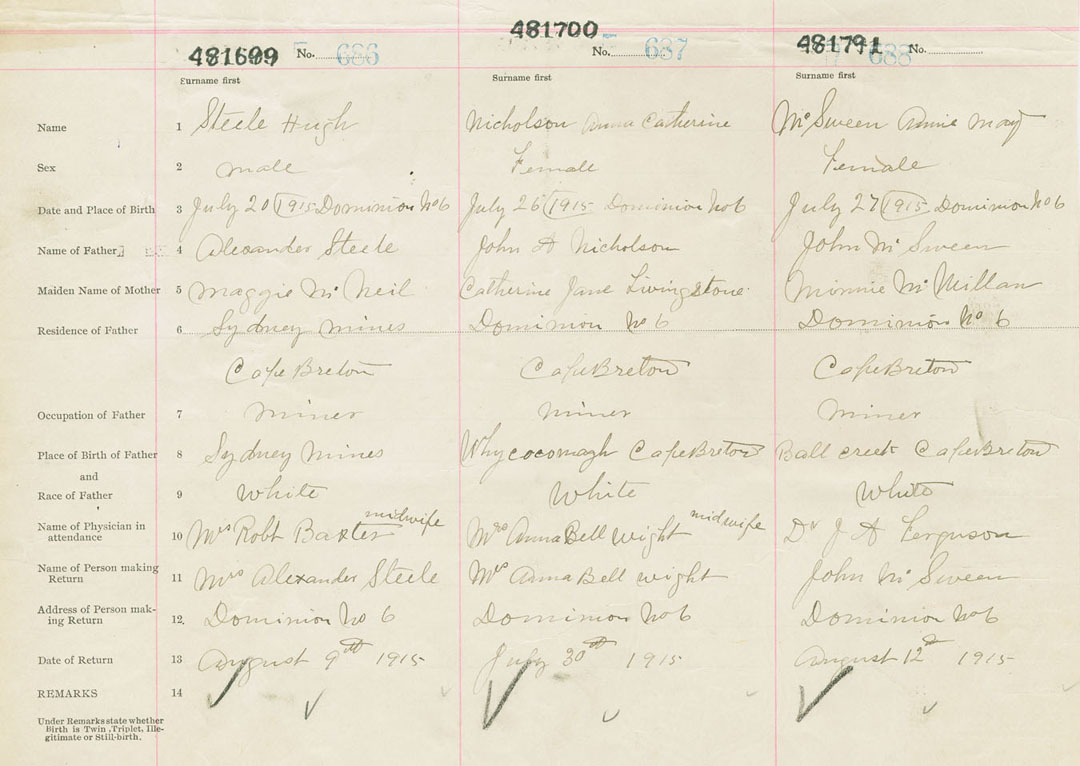 481699 No. 686 481700 No. 687 481791 No. 688
Surname first Surname first Surname first
Name 1 Steele Hugh Nicholson Anna Catherine McSween Annie May
Sex 2 male Female Female
Date and Place of Birth 3 July 20 1915 Dominion No 6 July 26 1915 Dominion No 6 July 27 1915 Dominion No 6
Name of Father 4 Alexander Steele John A Nicholson John McSween
Maiden Name of Mother 5 Maggie McNeil Catherine Jane Livingstone Minnie McMillan
Residence of Father 6 Sydney mines Dominion No 6 Dominion No 6
Cape Breton Cape Breton Cape Breton
Occupation of Father 7 miner miner miner
Place of Birth of Father 8 Sydney mines Whycocomagh Cape Breton Ball creek Cape Breton
and
Race of Father 9 White White White
Name of Physician in attendance 10 Mrs Robt Baxter midwife Mrs Anna Bell wight midwife Dr J A Ferguson
Name of Person making Return 11 Mrs Alexander Steele Mrs Anna Bell wight John McSween
Address of Person mak-ing Return 12. Dominion No 6 Dominion No 6 Dominion No 6
Date of Return 13 August 9th 1915 July 30th 1915 August 12th 1915
REMARKS 14
Under Remarks state whether
Birth is Twin, Triplet, Ille-
gitimate or Still-birth.